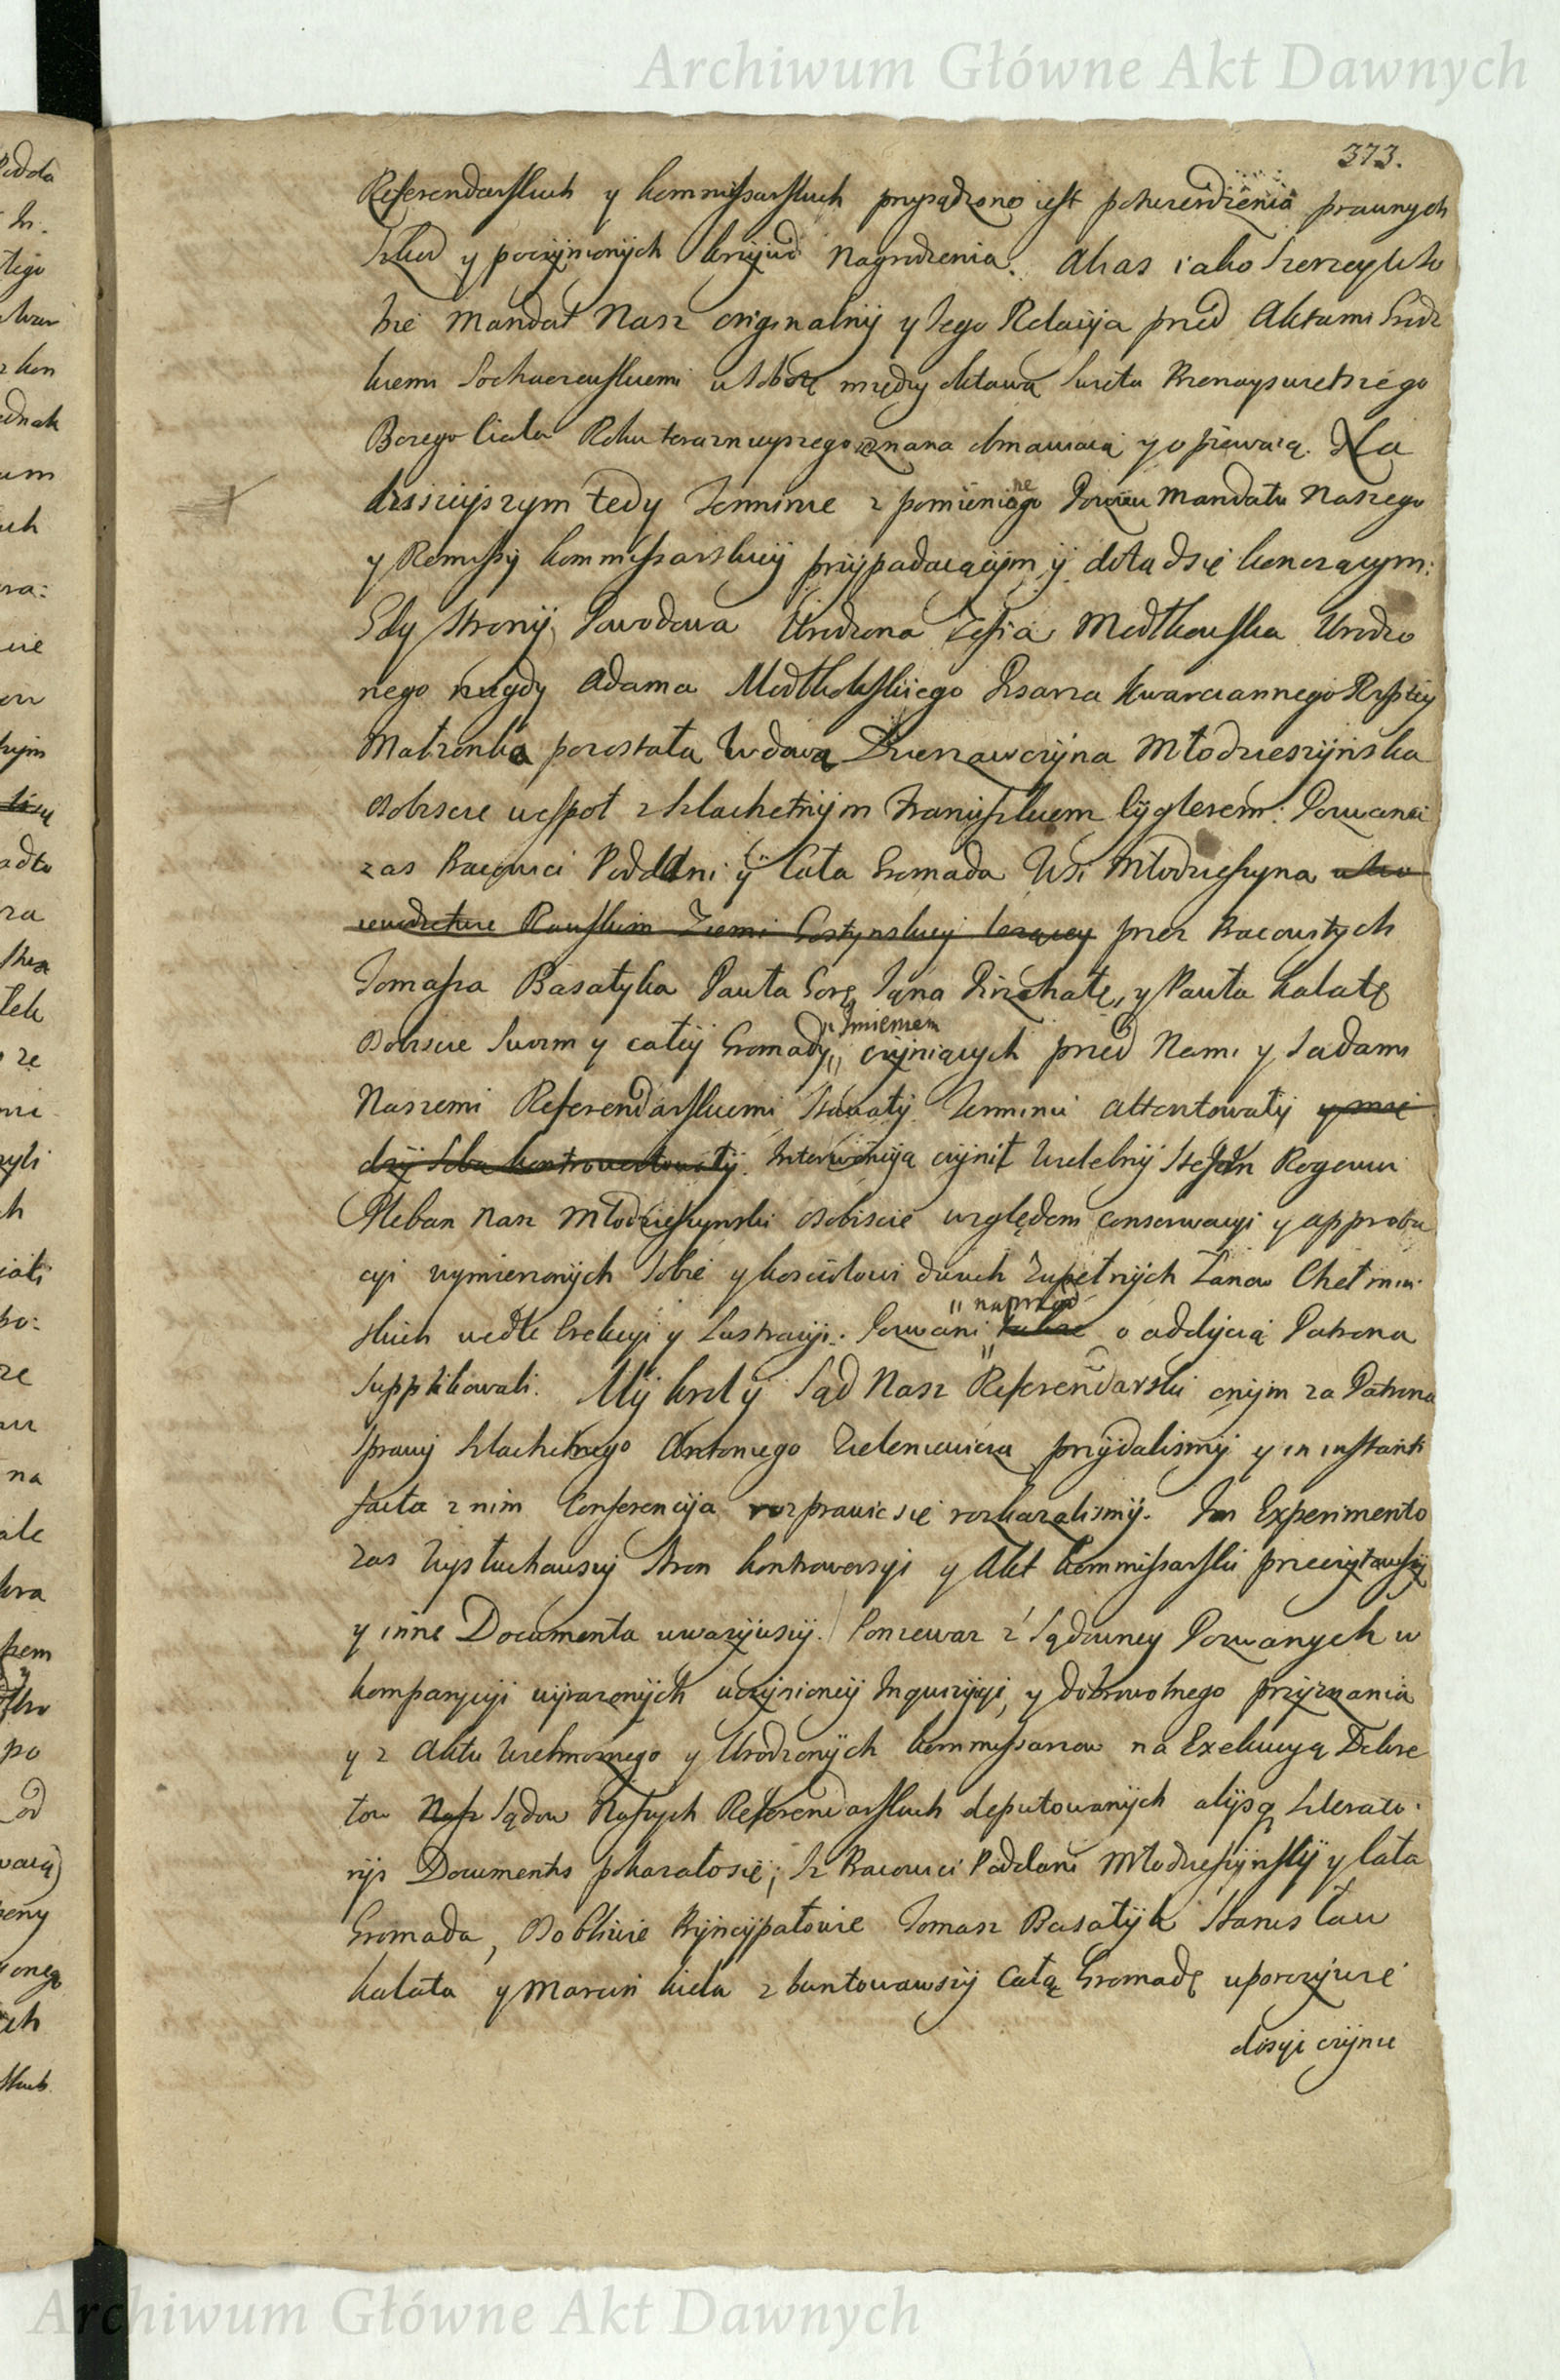 Archiwum Główne Akt Dawnych
373.
Referendarskich y kommissarskich przysądzono iest potwierdzenia prawnych
szkod y poczynionych krzywd nagrodzenia. Ak as iako szerzey
Mandat Nasz oryginalny y Jego Relacyja przed Aktami Grodz
kiemi Sochaczewskiemi w Sobotę między oktawą Swięta Przenayswiętszego
Bozego Ciała Roku teraznieyszego zeznana obmawiaią y opiewaią. Na
dzisieyszym tedy Terminie z pomienionego Pozwu Mandatu Naszego
y Remissy kommissarskiey przypadaiącym y dotąd się konczącym:
Gdy Strony Powodowa Urodzona Zofia Modłkowska Urodzo
nego niegdy Adama Modłkowskiego Pisarza kwarciannego Rzptey
Małzonka pozostała Wdowa Dzierzawczyna Młodzieszyńska
osobiscie wespoł z Szlachetnym Franciszkiem Cyglerem: Pozwani
zas Pracowici Poddani y Cała Gromada Wsi Młodzieszyna w Wo
iewodztwie Rawskim Ziemi Gostynskiey lezącey przez Pracowitych
Tomasza Basałyka Pawła Gorę, Jana Pirzchałę, y Pawła Kalatę
Osobiscie Swoim y całey Gromady „Imieniem czyniących przed Nami y Sądami
Naszemi Referendarskiemi Stawały Terminu attentowały y mie
dzy Sobą kontrowertowały. Interwencyią czynił Wielebny Stefan Rogowi
Pleban Nasz Młodzieszynski osobiscie względem conserwacyi y approba
cyi wymienionych Sobie y kosciołowi dwuch Zupełnych Łanow Chełmin
skich wedle Erekcyi y Lustracyi. Pozwani „naprzod o addycią Patrona
Supplikowali. My krol y Sąd Nasz Referendarski onym za Patrona
Sprawy Szlachetnego Antoniego Zieleniewicza przydalismy y in instanti
facta z nim Conferencyia rozprawic się rozkazalismy. In Experimento
zas Wysłuchawszy Stron kontrowersyi y Akt kommissarski przeczytawszy
y inne Documenta uwazywszy. Poniewaz z Sądowney Pozwanych w
komparycyi wyrazonych uczynioney Inquizycyi, y dobrowolnego przyznania
y z Aktu Wielmoznego y Urodzonych kommissarzow na Exekucyą Dekre
tow Nasz Sądow Naszych Referendarskich deputowanych alijsq Literato
rijs Documentis pokazało się; Iz Pracowici Poddani Młodzieszynscy y Cała
Gromada, Osobliwie Pryncypałowie Tomasz Basałyk Stanisław
kalata y Marcin kiela zbuntowawszy Całą Gromadę uporczywie
dosyc czynic
Archiwum Główne Akt Dawnych